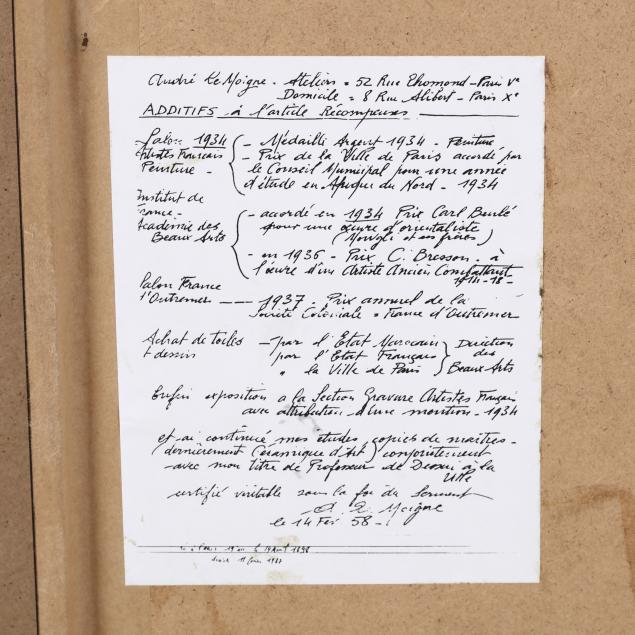 André Le Moigne. Ateliers = 52 Rue Lhomond - Paris Ve
Domicile = 8 Rue Alibert - Paris Xe
ADDITIFS à l'article Récompenses
Salon 1934 - Médaille Argent 1934 - Peinture
Artistes Français - Prix de la Ville de Paris accordé par
Peinture - le Conseil Municipal pour une année
d'étude en Afrique du Nord - 1934
Institut de
France -
Académie des - accordé en 1934 Prix Carl
Beaux Arts pour une œuvre d'orientaliste
(Mowgli et ses frères)
- en 1936 - Prix C. Bresson. à
l'œuvre d'un Artiste Ancien Combattant
14-18-
Salon France
d'Outremer -- 1937 - Prix annuel de la
Société Coloniale = France d'Outremer
Achat de toiles - par l'Etat Marocain Direction
et dessin par l'Etat Français des
" la Ville de Paris Beaux Arts
Enfin exposition a la Section Gravure Artistes Français
avec attribution d'une mention - 1934
et ai continué mes études, copies de maitres -
(dernièrement Céramique d'Art) conjointement
- avec mon titre de Professeur de Dessin à la
Ville
certifié véritable sous la foi du Serment
le 14 Fév 58 -